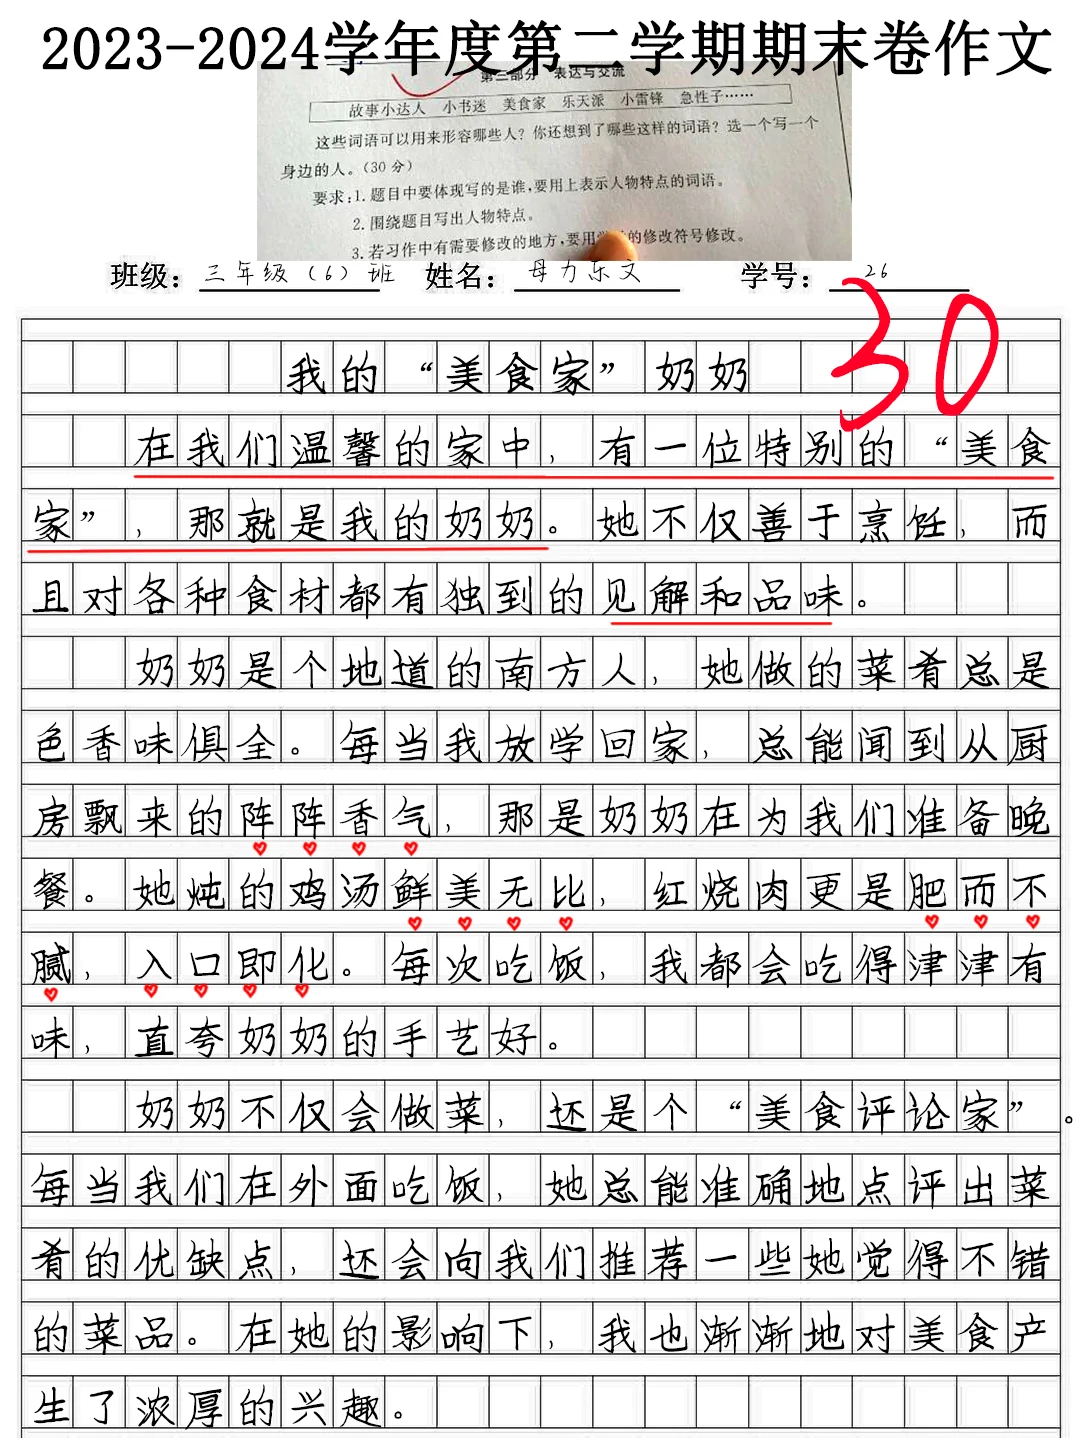 2023-2024学年度第二学期期末卷作文
第三部分 表达与交流
故事小达人 小书迷 美食家 乐天派 小雷锋 急性子……
这些词语可以用来形容哪些人？你还想到了哪些这样的词语？选一个写一个
身边的人。（30分）
要求：1.题目中要体现写的是谁，要用上表示人物特点的词语。
2.围绕题目写出人物特点。
3.若习作中有需要修改的地方，要用 的修改符号修改。
班级：三年级（6）班 姓名：母力东文 学号：26
30
我的“美食家”奶奶
在我们温馨的家中，有一位特别的“美食
家”，那就是我的奶奶。她不仅善于烹饪，而
且对各种食材都有独到的见解和品味。
奶奶是个地道的南方人，她做的菜肴总是
色香味俱全。每当我放学回家，总能闻到从厨
房飘来的阵阵香气，那是奶奶在为我们准备晚
餐。她炖的鸡汤鲜美无比，红烧肉更是肥而不
腻，入口即化。每次吃饭，我都会吃得津津有
味，直夸奶奶的手艺好。
奶奶不仅会做菜，还是个“美食评论家”。
每当我们在外面吃饭，她总能准确地点评出菜
肴的优缺点，还会向我们推荐一些她觉得不错
的菜品。在她的影响下，我也渐渐地对美食产
生了浓厚的兴趣。